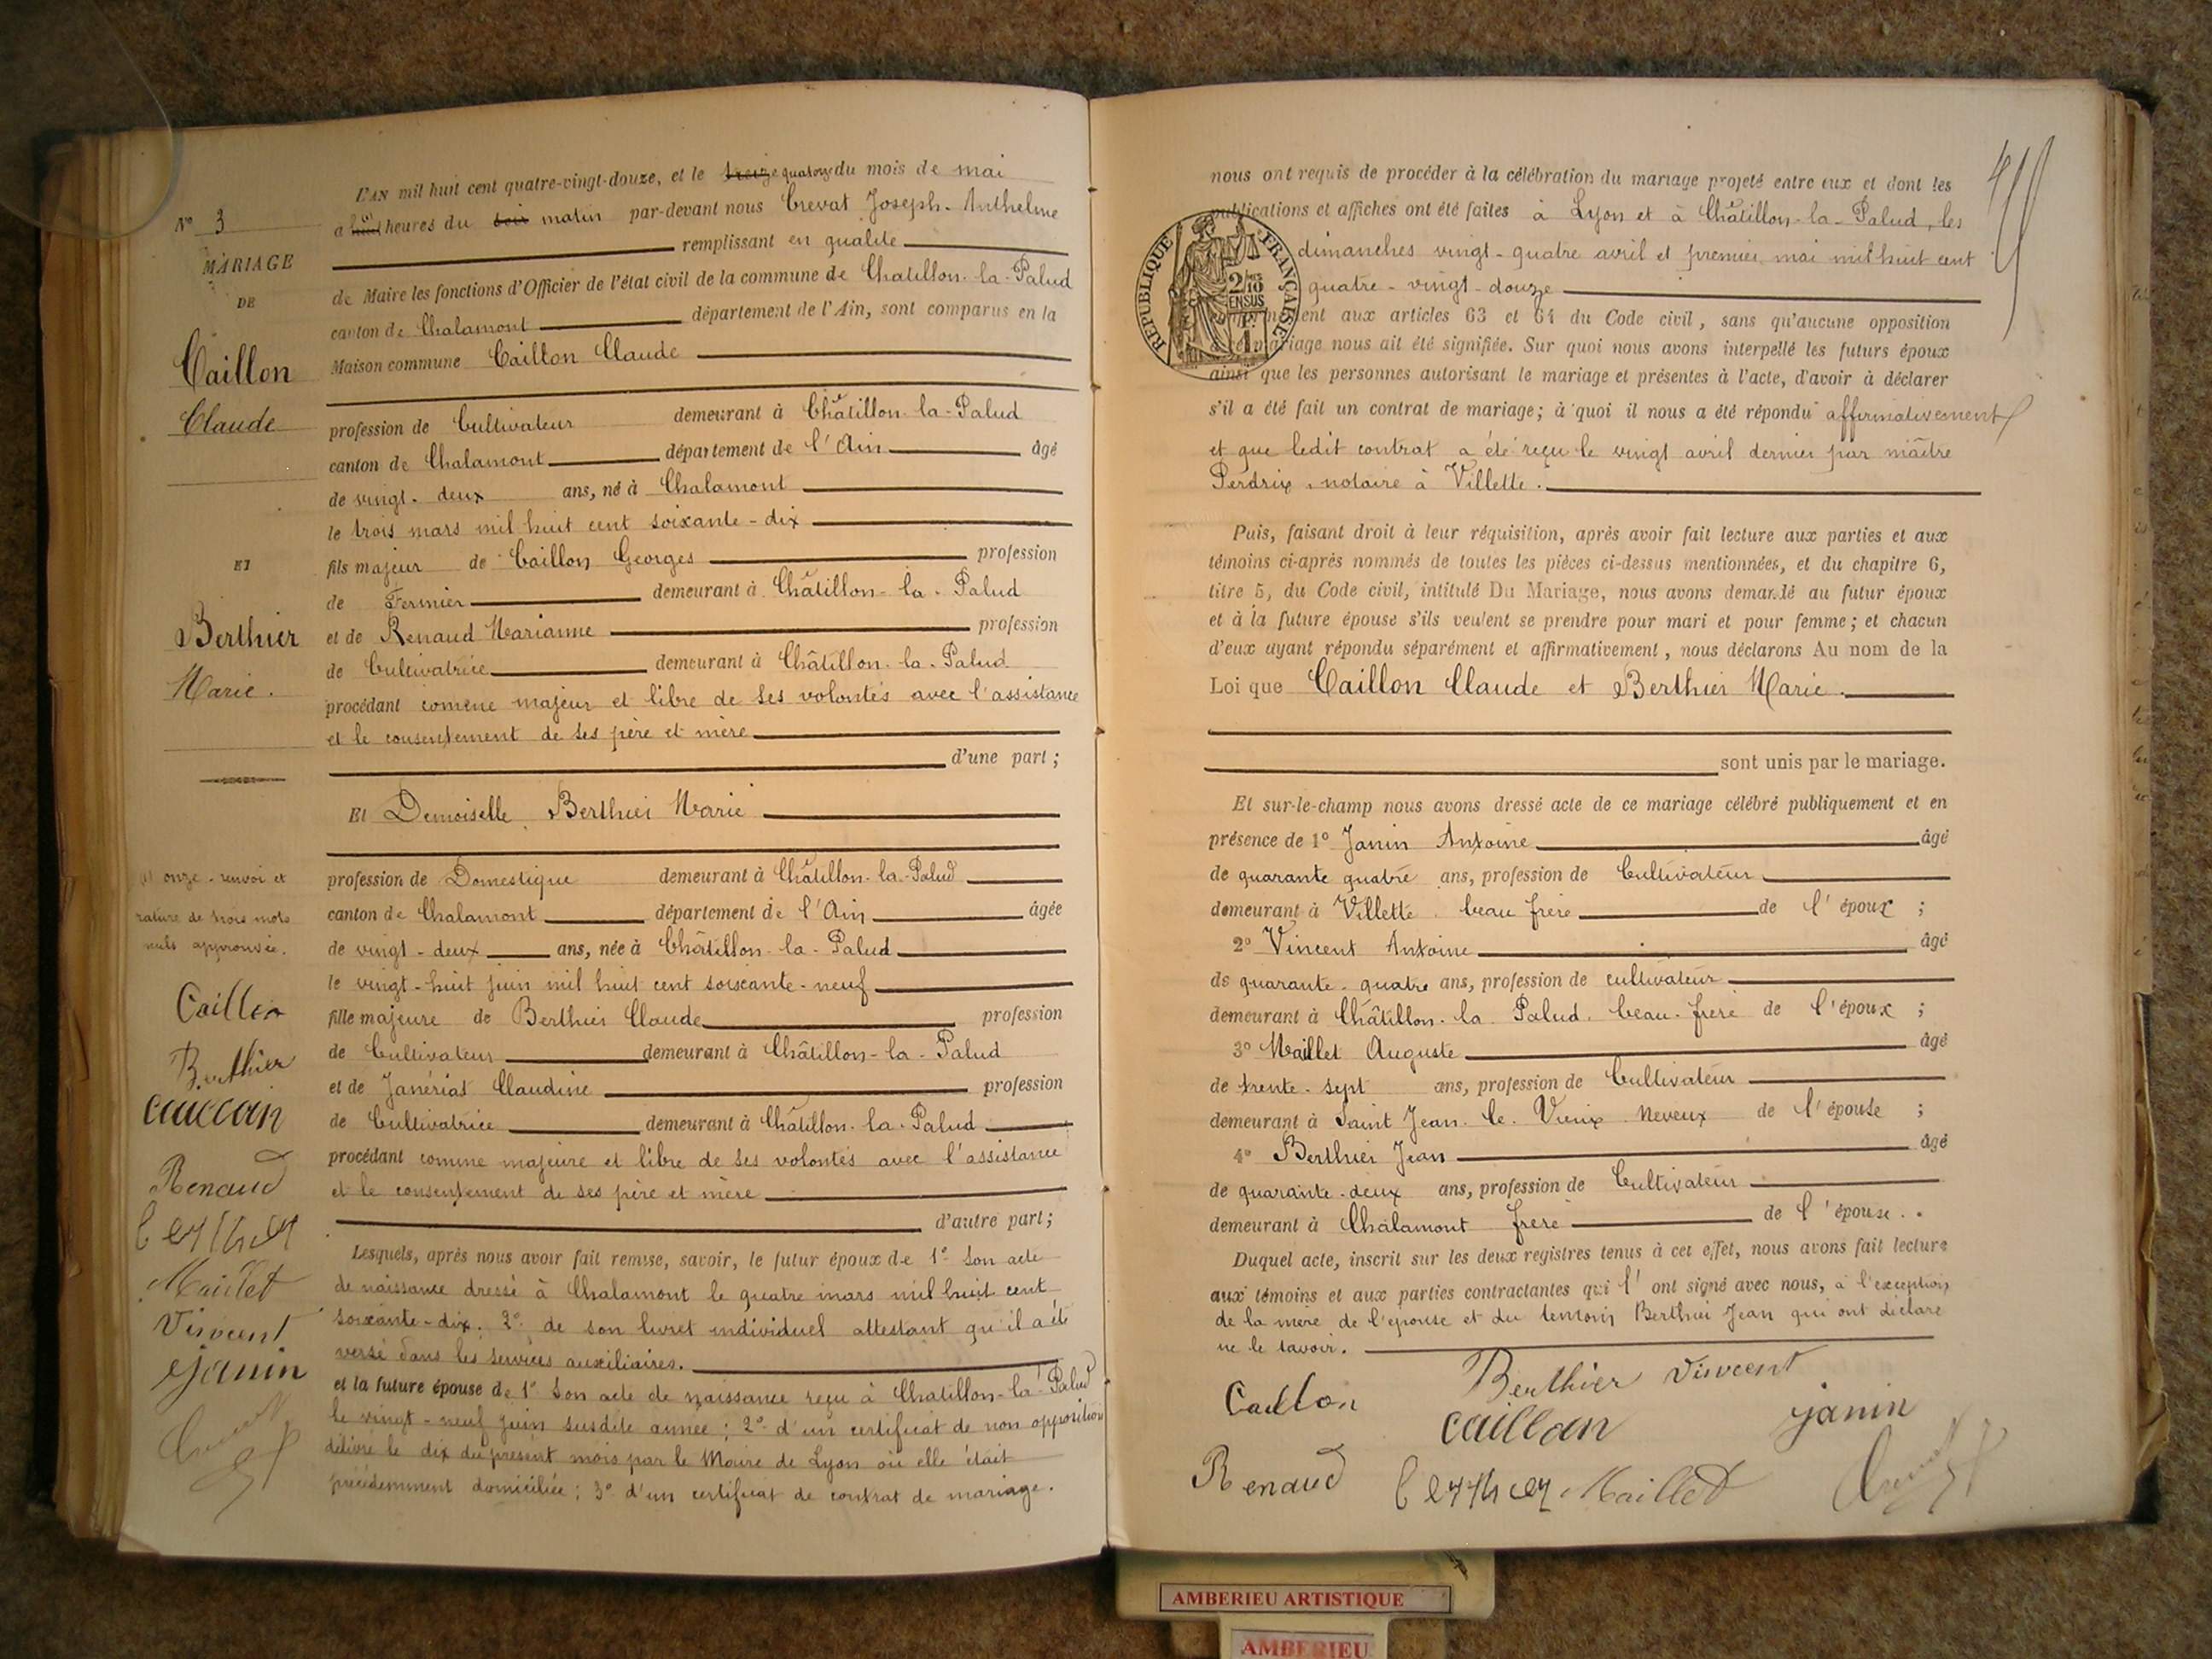 N° 3
MARIAGE
DE
Caillon
Claude
ET
Berthier
Marie.
onze - renvoi et
rature de trois mots
nuls approuvée.
Caillon
Berthier
caillon
Renaud
berthier
Maillet
Vincent
janin
L'AN mil huit cent quatre-vingt-douze, et le treize quatorze du mois de mai
à huit heures du soir matin par-devant nous Crevat Joseph-Anthelme
remplissant en qualité
de Maire les fonctions d'Officier de l'état civil de la commune de Chatillon-la-Palud
canton de Chalamont département de l'Ain, sont comparus en la
Maison commune Caillon Claude
profession de Cultivateur demeurant à Châtillon-la-Palud
canton de Chalamont département de l'Ain âgé
de vingt-deux ans, né à Chalamont
le trois mars mil huit cent soixante-dix
fils majeur de Caillon Georges profession
de Fermier demeurant à Châtillon-la-Palud
et de Renaud Marianne profession
de Cultivatrice demeurant à Châtillon-la-Palud
procédant comme majeur et libre de ses volontés avec l'assistance
et le consentement de ses père et mère
d'une part ;
Et Demoiselle Berthier Marie
profession de Domestique demeurant à Châtillon-la-Palud
canton de Chalamont département de l'Ain âgée
de vingt-deux ans, née à Châtillon-la-Palud
le vingt-huit juin mil huit cent soixante-neuf
fille majeure de Berthier Claude profession
de Cultivateur demeurant à Châtillon-la-Palud
et de Janériat Claudine profession
de Cultivatrice demeurant à Châtillon-la-Palud
procédant comme majeure et libre de ses volontés avec l'assistance
et le consentement de ses père et mère
d'autre part ;
Lesquels, après nous avoir fait remise, savoir, le futur époux de 1° Son acte
de naissance dressé à Chalamont le quatre mars mil huit cent
soixante-dix. 2° de son livret individuel attestant qu'il a été
versé dans les services auxiliaires.
et la future épouse de 1° Son acte de naissance reçu à Chatillon-la-Palud
le vingt-neuf juin susdite année ; 2° d'un certificat de non opposition
délivré le dix du présent mois par le Maire de Lyon où elle était
précédemment domiciliée ; 3° d'un certificat de contrat de mariage.
nous ont requis de procéder à la célébration du mariage projeté entre eux et dont les
publications et affiches ont été faites à Lyon et à Châtillon-la-Palud, les
dimanches vingt-quatre avril et premier mai mil huit cent
quatre-vingt-douze
RÉPUBLIQUE FRANÇAISE
2/10
EN SUS
conformément aux articles 63 et 64 du Code civil, sans qu'aucune opposition
à ce mariage nous ait été signifiée. Sur quoi nous avons interpellé les futurs époux
ainsi que les personnes autorisant le mariage et présentes à l'acte, d'avoir à déclarer
s'il a été fait un contrat de mariage ; à quoi il nous a été répondu affirmativement
et que ledit contrat a été reçu le vingt avril dernier par maître
Perdrix, notaire à Villette.
Puis, faisant droit à leur réquisition, après avoir fait lecture aux parties et aux
témoins ci-après nommés de toutes les pièces ci-dessus mentionnées, et du chapitre 6,
titre 5, du Code civil, intitulé Du Mariage, nous avons demandé au futur époux
et à la future épouse s'ils veulent se prendre pour mari et pour femme ; et chacun
d'eux ayant répondu séparément et affirmativement, nous déclarons Au nom de la
Loi que Caillon Claude et Berthier Marie.
sont unis par le mariage.
Et sur-le-champ nous avons dressé acte de ce mariage célébré publiquement et en
présence de 1° Janin Antoine âgé
de quarante quatre ans, profession de Cultivateur
demeurant à Villette. beau frère de l'époux ;
2° Vincent Antoine âgé
de quarante-quatre ans, profession de cultivateur
demeurant à Châtillon-la Palud. beau-frère de l'époux ;
3° Maillet Auguste âgé
de trente-sept ans, profession de Cultivateur
demeurant à Saint Jean-le-Vieux Neveux de l'épouse ;
4° Berthier Jean âgé
de quarante-deux ans, profession de Cultivateur
demeurant à Chalamont frère de l'épouse.
Duquel acte, inscrit sur les deux registres tenus à cet effet, nous avons fait lecture
aux témoins et aux parties contractantes qui l'ont signé avec nous, à l'exception
de la mère de l'épouse et du témoin Berthier Jean qui ont déclaré
ne le savoir.
Caillon Berthier Vincent
caillon janin
Renaud berthier Maillet
AMBERIEU ARTISTIQUE
AMBERIEU